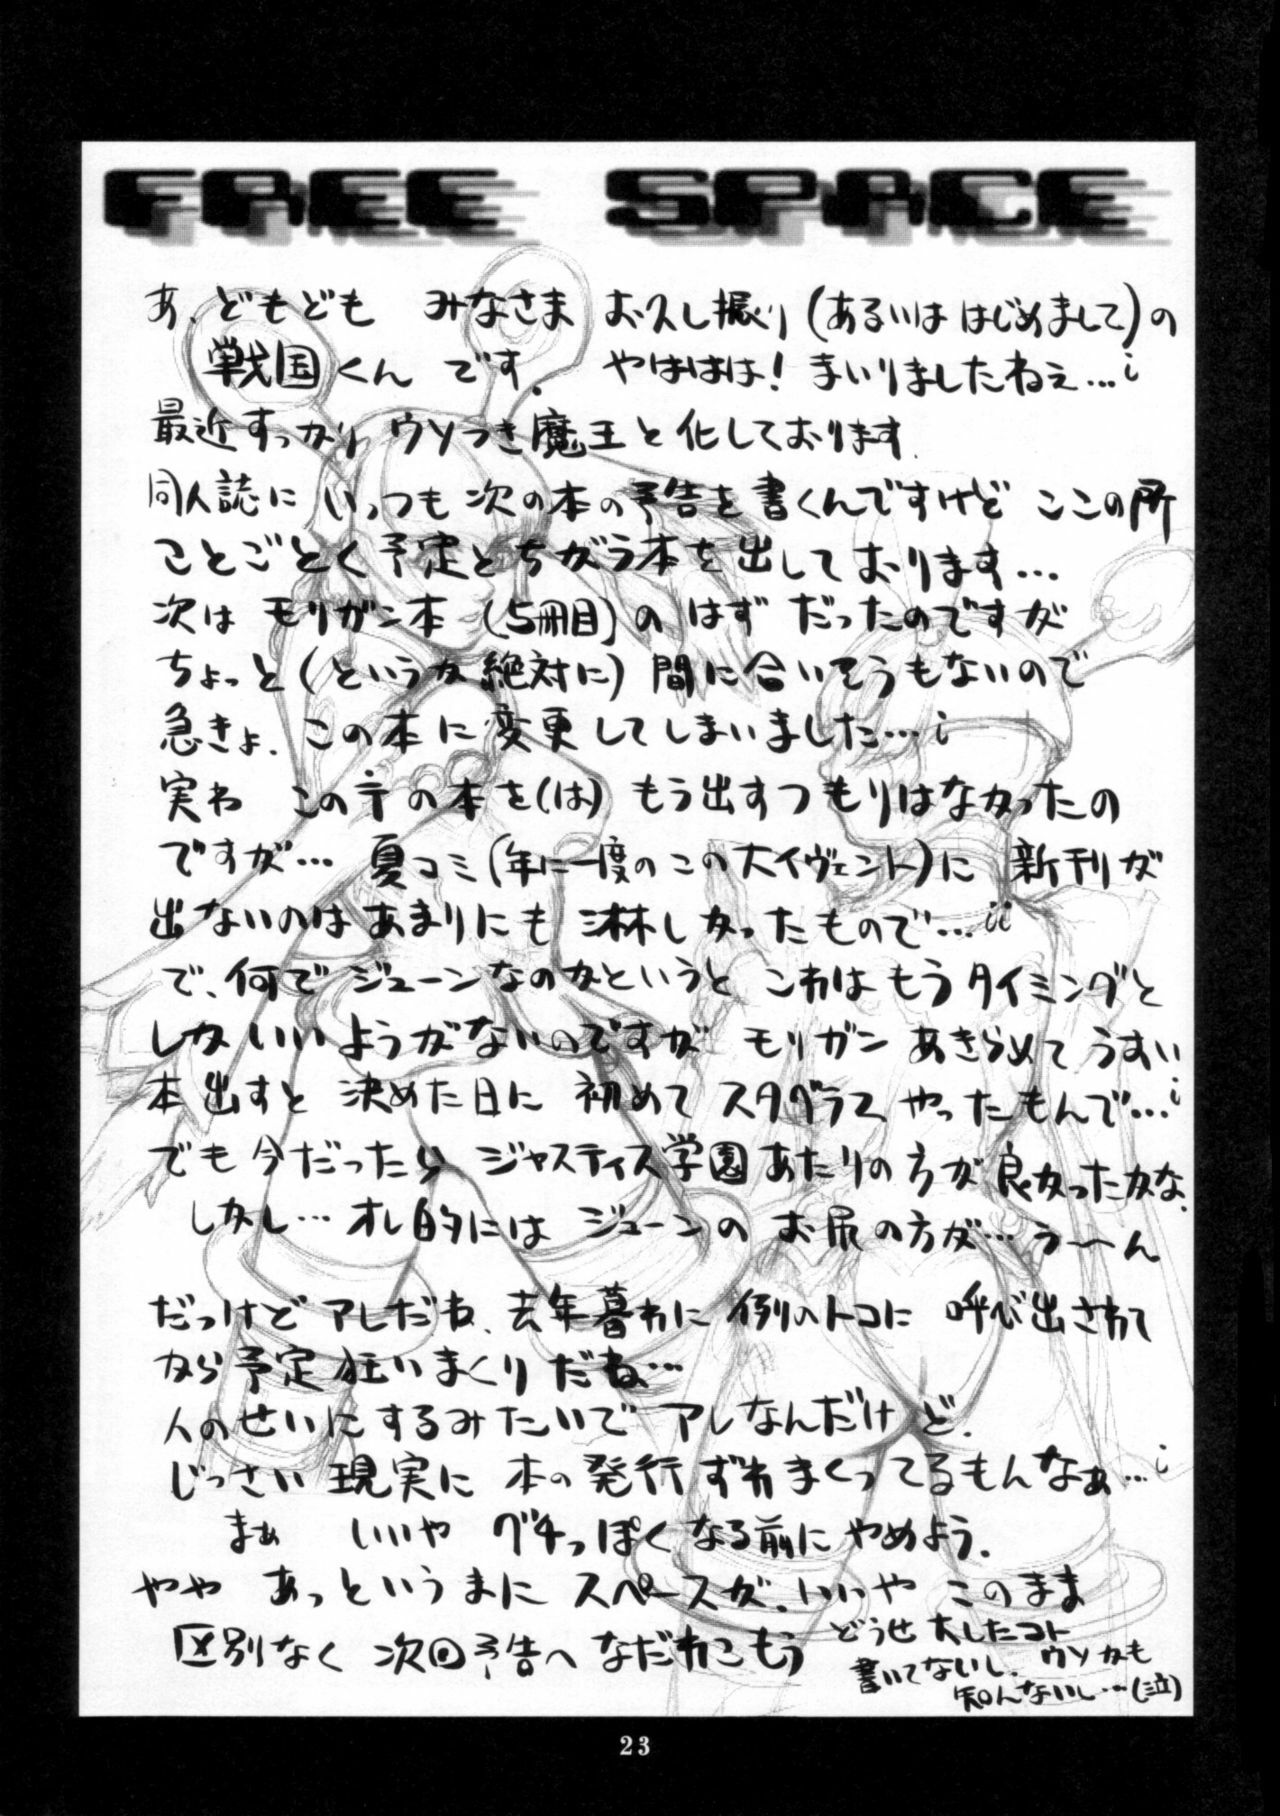 FREE SPACE
あ、どもども みなさま お久し振り(あるいは はじめまして)の
戦国くん です。 やははは! まいりましたねえ…
最近すっかり ウソつき魔王と化しております.
同人誌に いっつも 次の本の予告を書くんですけど ここの所
ことごとく予定とちがう本を出しております…
次は モリガン本 (5冊目)の はず だったのですが
ちょっと(というか絶対に) 間に合いそうもないので
急きょ、この本に変更してしまいました…
実わ この テの本を(は) もう出すつもりはなかったの
ですが… 夏コミ(年に一度のこの大イヴェント)に 新刊が
出ないのはあまりにも 淋しかったもので…
で、何でジューンなのかというと これはもうタイミングと
しかいいようがないのですが モリガン あきらめて うすい
本出すと 決めた日に 初めて スタグラス やったもんで…
でも今だったら ジャスティス学園あたりの方が良かったかな.
しかし… オレ的には ジューンの お尻の方が… う〜ん
だっけどアレだね、去年暮れに 例のトコに 呼び出されて
から予定狂いまくりだね…
人のせいにするみたいで アレなんだけど.
じっさい現実に 本の発行ずれまくってるもんなぁ…
まぁ いいや グチっぽくなる前にやめよう.
やや あっというまに スペースが、いいや このまま
区別なく 次回予告へなだれこもう
どうせ大したコト
書いてないし、ウソかも
知んないし…(泣)
23